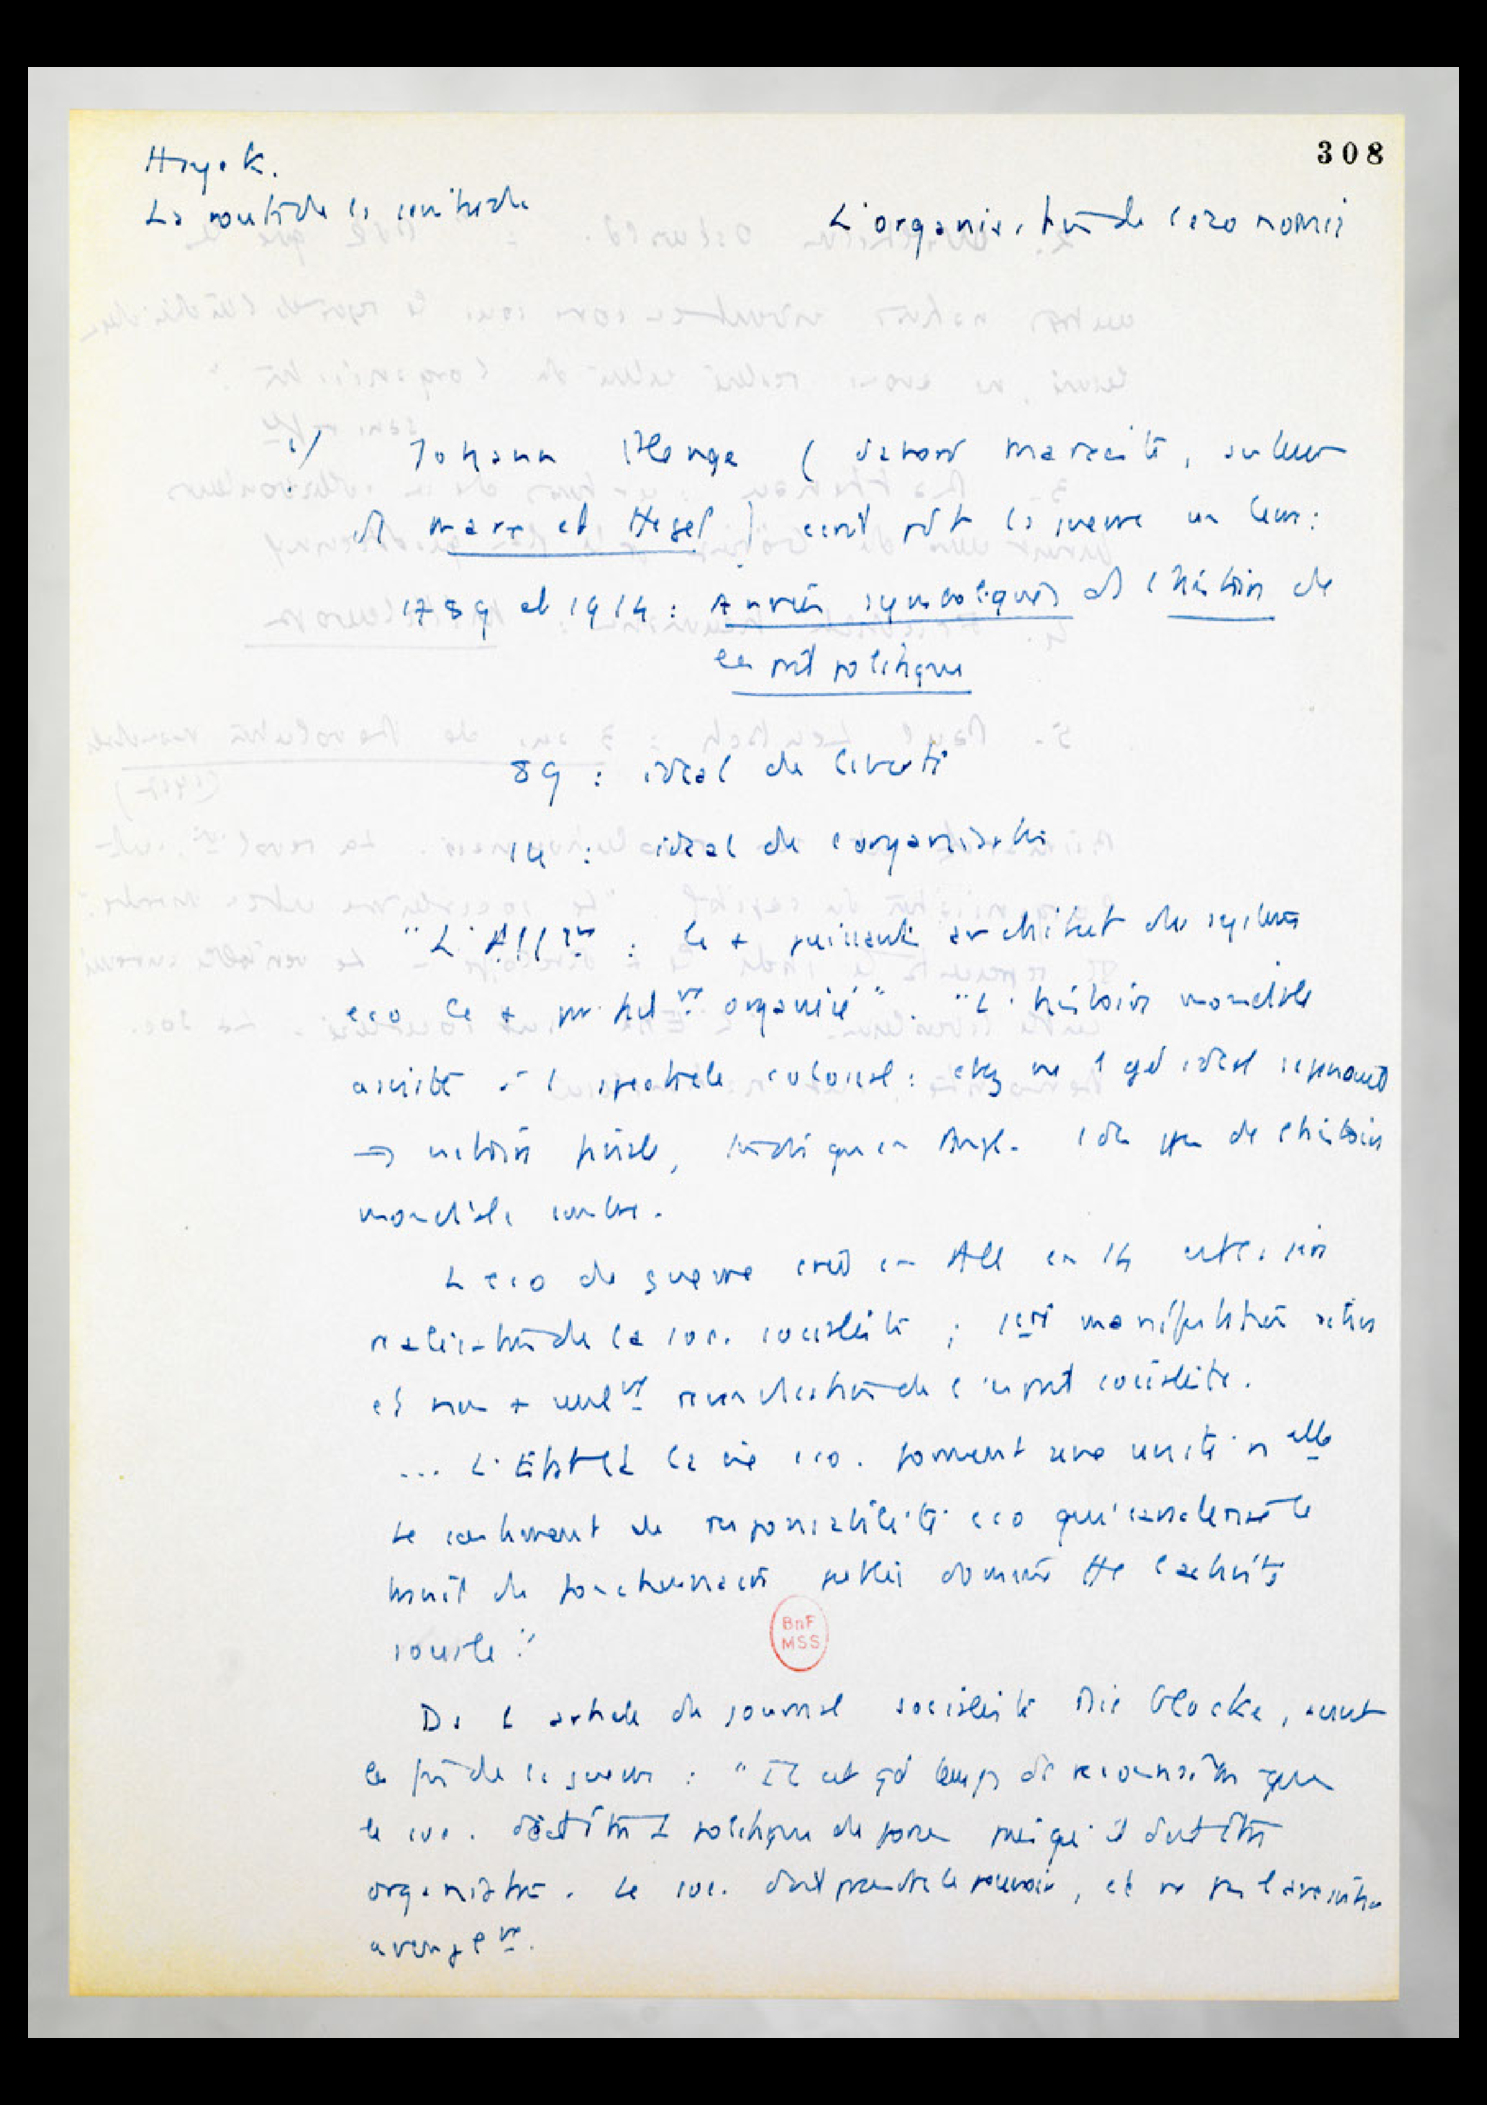 308
Hayek.
La route de la servitude
L'organisation de l'economie
1/ Johann Plenge (d'abord marxiste, auteur
de Marx et Hegel) écrit pdt la guerre un livre :
1789 et 1914 : Années symboliques ds l'histoire de
l'esprit politique
89 : idéal de liberté
14 : idéal de l'organisation
"L'Allgne : le + puissant architecte du système
eco le + profdt organisé". "L'histoire mondiale
assiste à l spectacle colossal : chez ns 1 gd idéal
→ victoire finale, tandis qu'en Angl.
mondiale
L'eco de guerre créée en All en 14 est la 1ère
réalisation de la soc. socialiste ; 1ère manifestation active
et non + seult revendication de l'esprit socialiste.
... L'Etat et la vie eco. forment une unité nelle
Le sentiment de responsabilité eco qui caractérise le
travail du fonctionnaire public domine tte l'activité
Ds l article du journal socialiste Die Glocke, avant
la fin de la guerre : "Il est gd temps de reconnaître que
le soc. doit être 1 politique de force puisqu'il doit être
organisation. Le soc. doit prendre le pouvoir, et ne pas
BnF
MSS